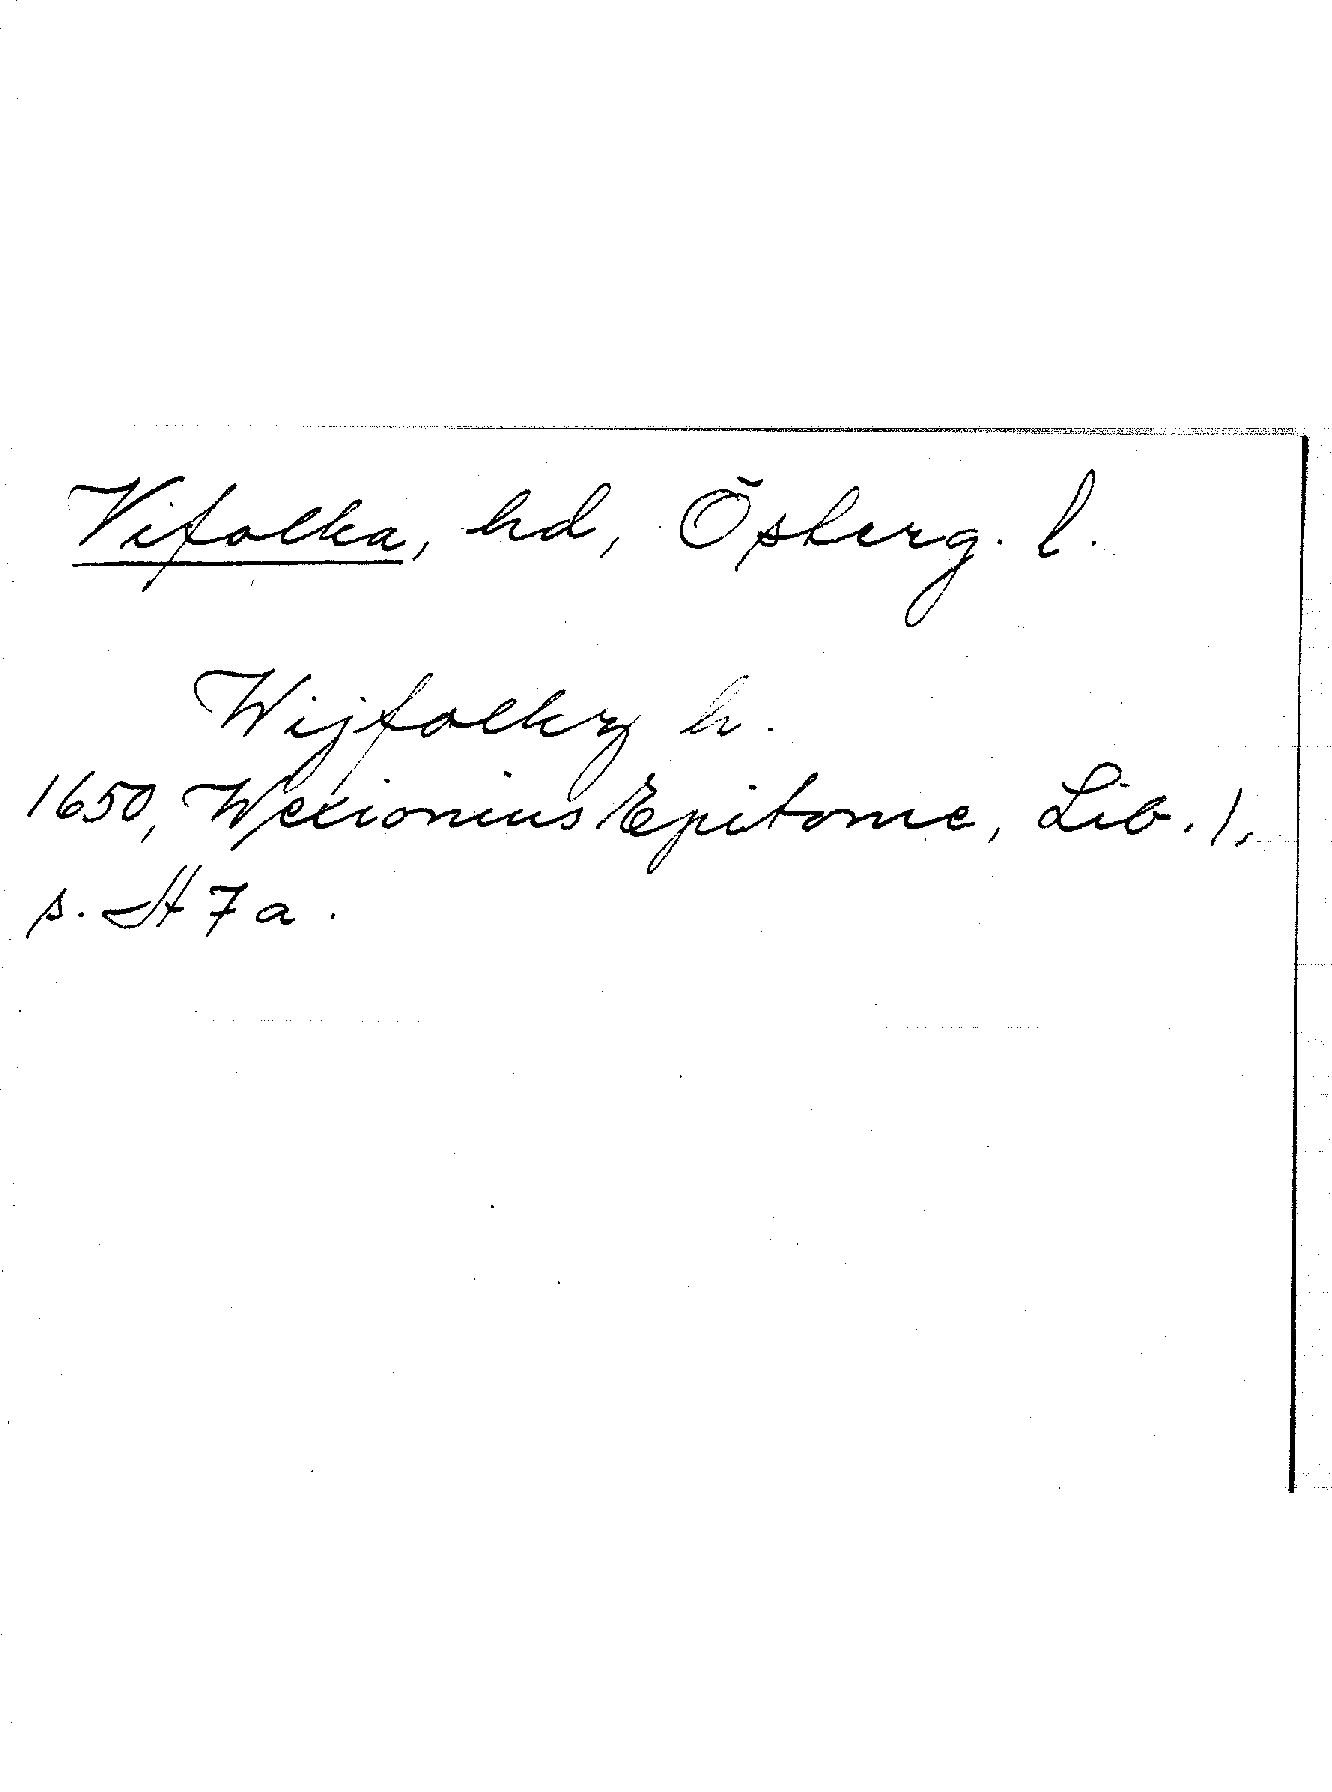 Vifolka, hd, Österg. l.
Wijfolkz h.
1650, Wexionius Epitome, Lib. 1,
s. H 7 a.